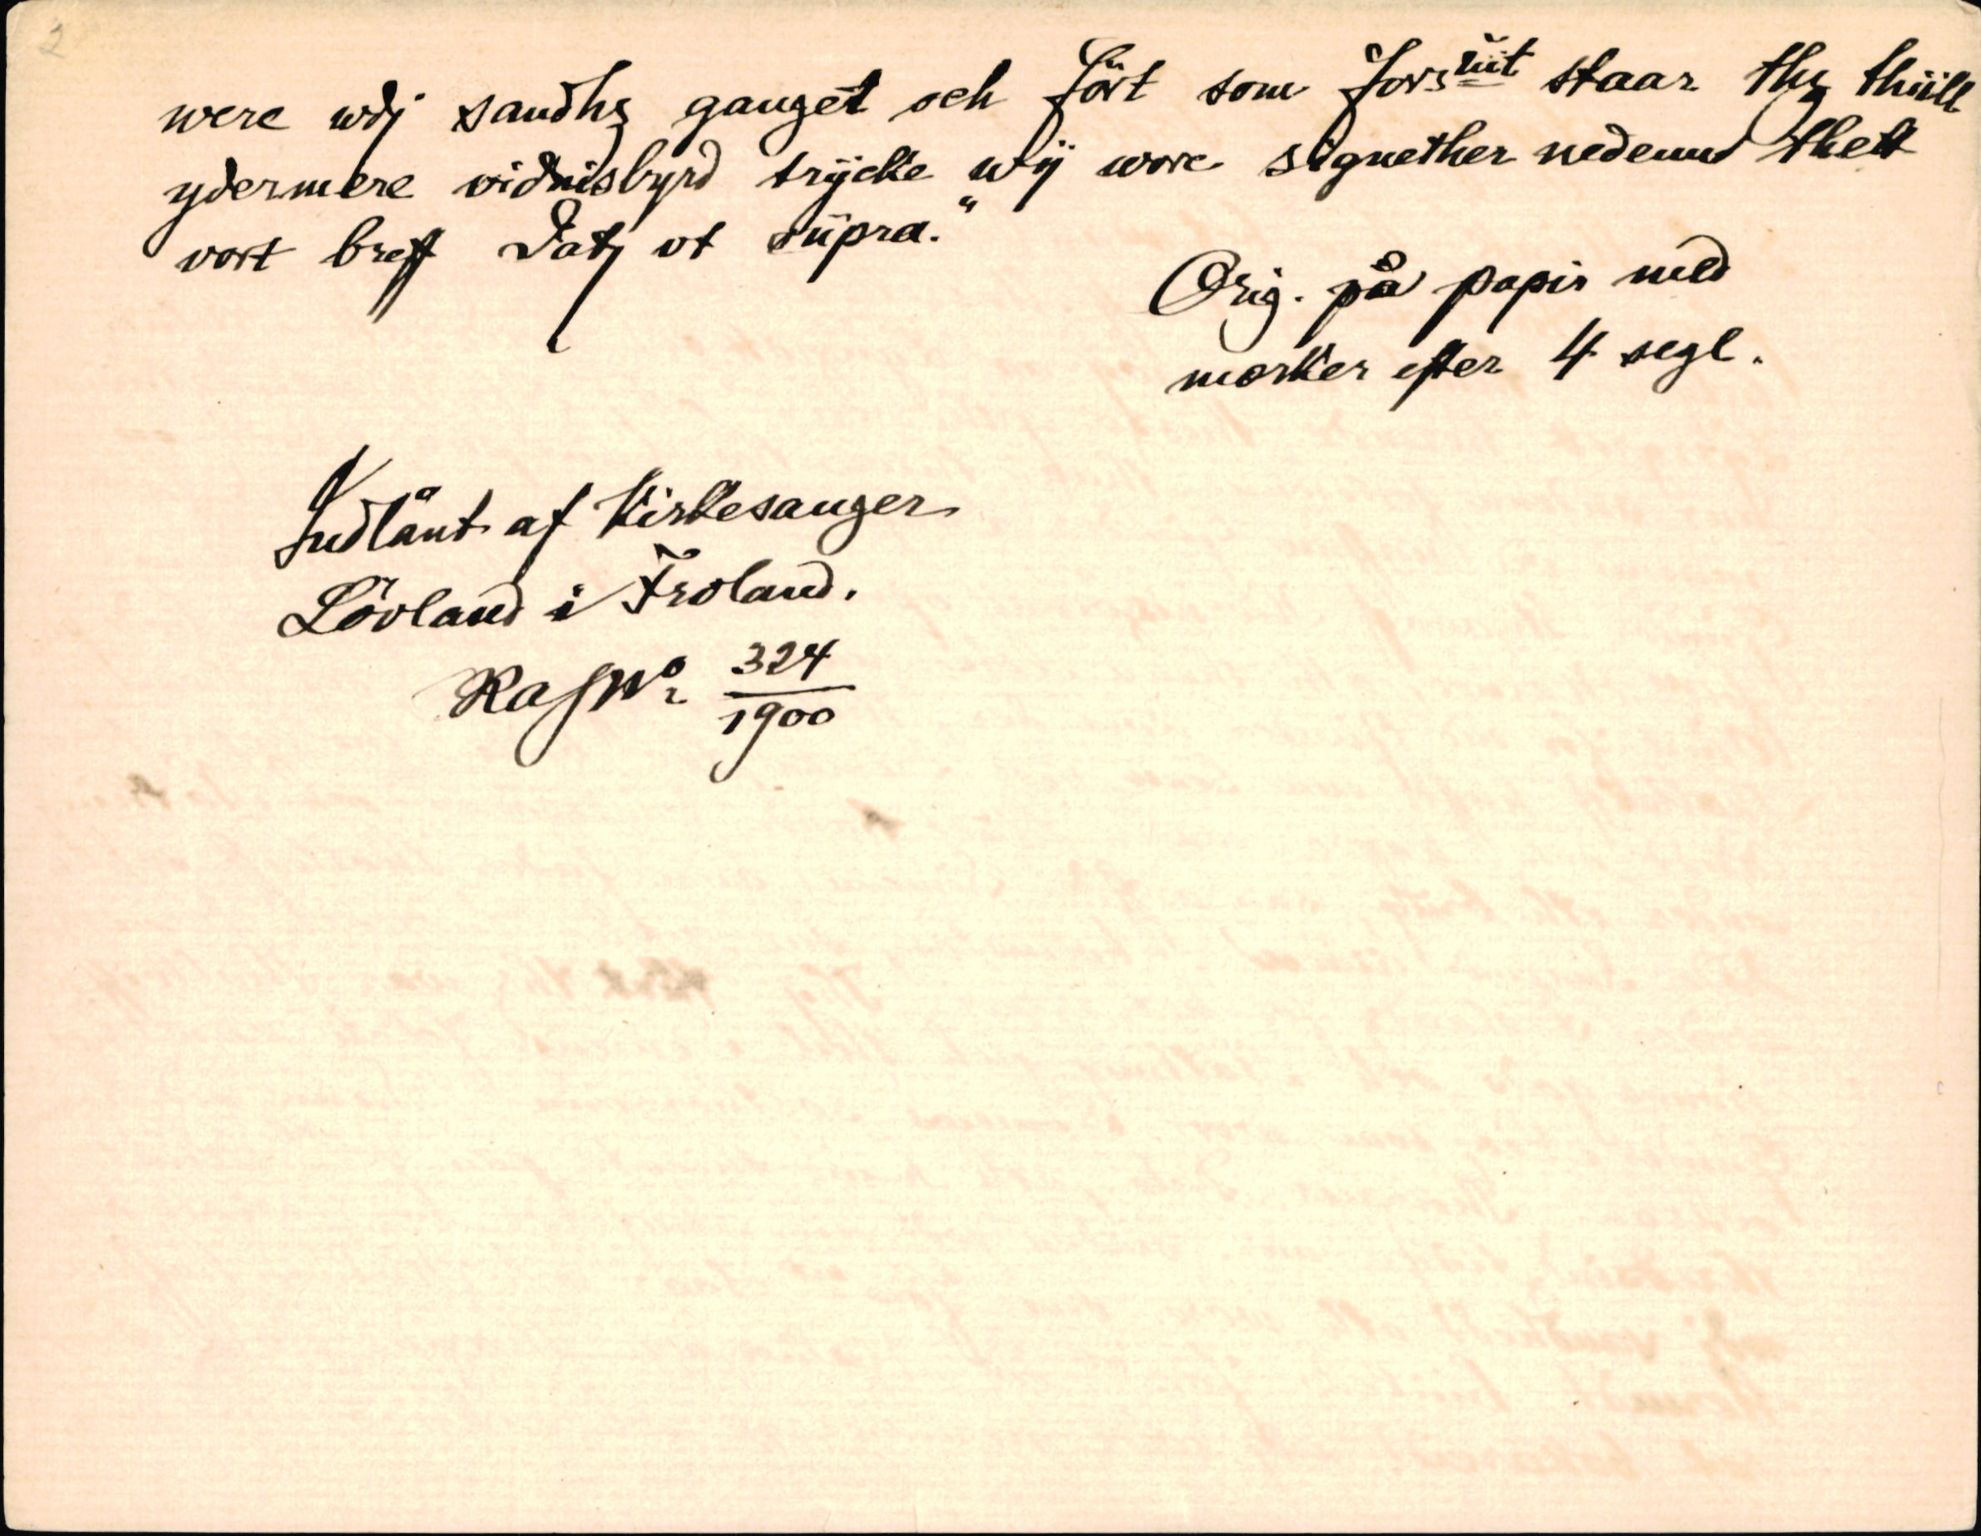 2
were wdj sandhz ganget och fört som forsuit staar thz thiill
ydermere vidnisbyrd trÿcke wÿ wore signether nedenud thett
vort breff Datz vt süpra."
Orig. på papir med
mærker efter 4 segl.
Indlånt af Kirkesanger
Lövland i Froland.
324
1900